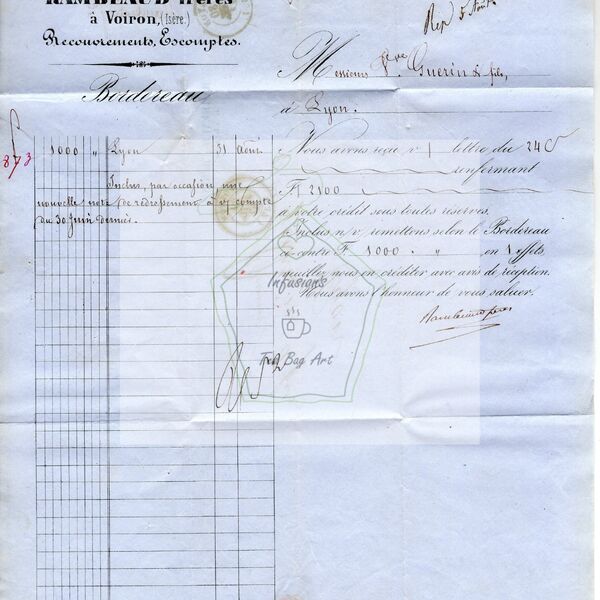 RAMBEAUD Frères
à Voiron, (Isère.)
Recouvrements, Escomptes.
Rép 5 Août
Messieurs Vve Guerin & fils,
à Lyon.
Bordereau
873
1000 " Lyon 31 Août
Inclus, par occasion, une
nouvelle note de redressement à v/ compte
du 30 Juin dernier.
Nous avons reçu v/ lettre du 24 Ct
renfermant
F. 2100
à votre crédit sous toutes réserves.
Inclus n/ v/ remettons selon le Bordereau
ci-contre F. 1000 " en 1 effets
veuillez nous en créditer avec avis de réception.
Nous avons l'honneur de vous saluer.
Rambeaud frères
Infusions
Tea Bag Art